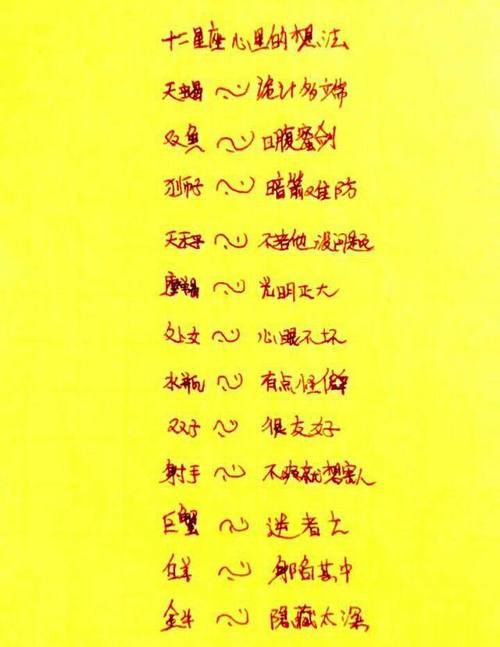 十二星座心里的想法
天蝎～诡计多端
双鱼～口腹蜜剑
狮子～暗箭难防
天平～不惹他没问题
摩羯～光明正大
处女～心眼不坏
水瓶～有点怪僻
双子～很友好
射手～不爽就想害人
巨蟹～逆者亡
白羊～身陷其中
金牛～隐藏太深